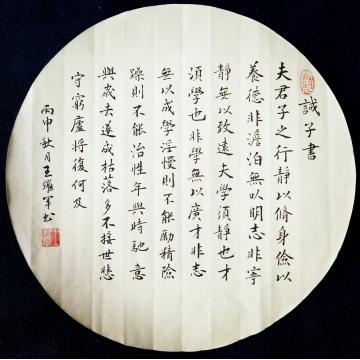 誡子書
夫君子之行静以脩身儉以
養德非澹泊無以明志非寧
静無以致遠夫學須静也才
須學也非學無以廣才非志
無以成學淫慢則不能勵精險
躁則不能治性年與時馳意
與歲去遂成枯落多不接世悲
守窮廬將復何及
丙申秋月王軍书